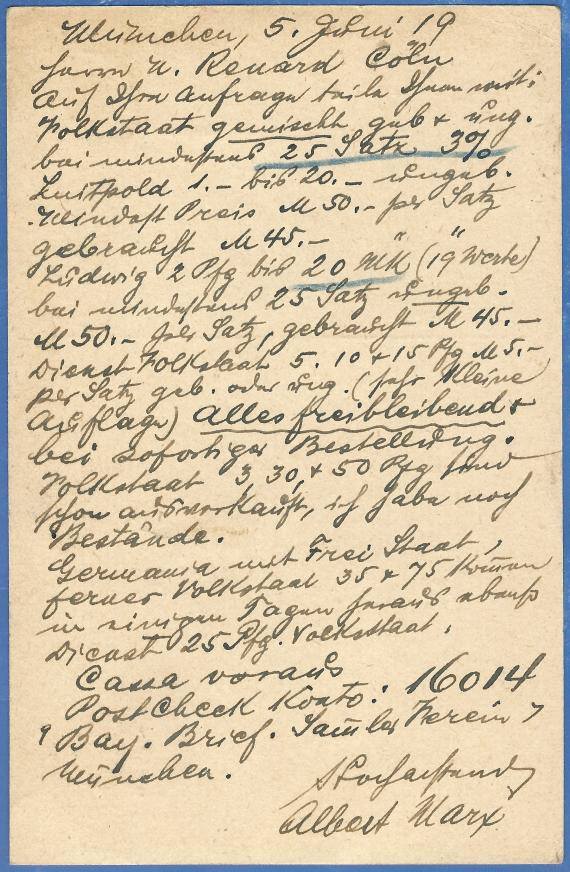 München, 5. Juni 19
Herrn A. Renard Cöln
Auf Ihre Anfrage teile Ihnen mit:
Volkstaat gemischt geb & ung.
bei mindestens 25 Satz 3%
Luitpold 1.- bis 20.- ungeb.
Mindest Preis M 50.- per Satz
gebraucht M 45.- " "
Ludwig 2 Pfg bis 20 MK (19 Werte)
bei mindestens 25 Satz ungeb.
M 50.- per Satz, gebraucht M 45.-
Dienst Volkstaat 5. 10 + 15 Pfg M 5.-
per Satz geb. oder ung. (sehr kleine
Auflage) Alles freibleibend &
bei sofortiger Bestellung.
Volkstaat 3, 30, & 50 Pfg sind
schon ausverkauft, ich habe noch
Bestände.
Germania mit Frei Staat,
ferner Volkstaat 35 & 75 kommen
in einigen Tagen heraus ebenso
Dienst 25 Pfg. Volksstaat.
Cassa voraus
Postcheck Konto: 16014
Bay. Brief. Samler Verein
München.
Hochachtend
Albert Marx